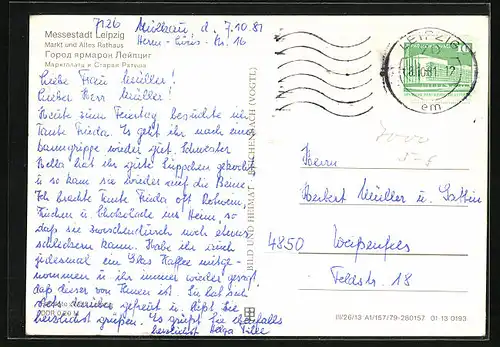 Messestadt Leipzig
Markt und Altes Rathaus
Город ярмарок Лейпциг
Марктплатц и Старая Ратуша
7126 Mölkau, d. 7.10.81
Herm.- Str. 16
Liebe Frau Müller!
Lieber Herr Müller!
Heute zum Feiertag besuchte ich
Tante Frieda. Es geht ihr nach einer
Darmgrippe wieder gut. Schwester
Bella hat ihr gute Süppchen gekocht
u. so kam sie wieder auf die Beine.
Ich brachte Tante Frieda oft Rotwein,
Kuchen u. Schokolade ins Heim, so
daß sie zwischendurch noch etwas
schlecken kann. Habe ihr auch
jedesmal ein Glas Kaffee mitge-
nommen u. ihr immer wieder gesagt,
daß dieser von Ihnen ist. Sie hat sich
stets darüber gefreut u. läßt Sie
herzlichst grüßen. Es grüßt Sie ebenfalls
herzlichst Helga
BILD UND HEIMAT REICHENBACH (VOGTL)
LEIPZIG
-8.10.81-12
em
Herrn
Herbert Müller u. Gattin
4850 Weißenfels
Feldstr. 18
III/26/13 A1/157/79-280157 01 13 0193